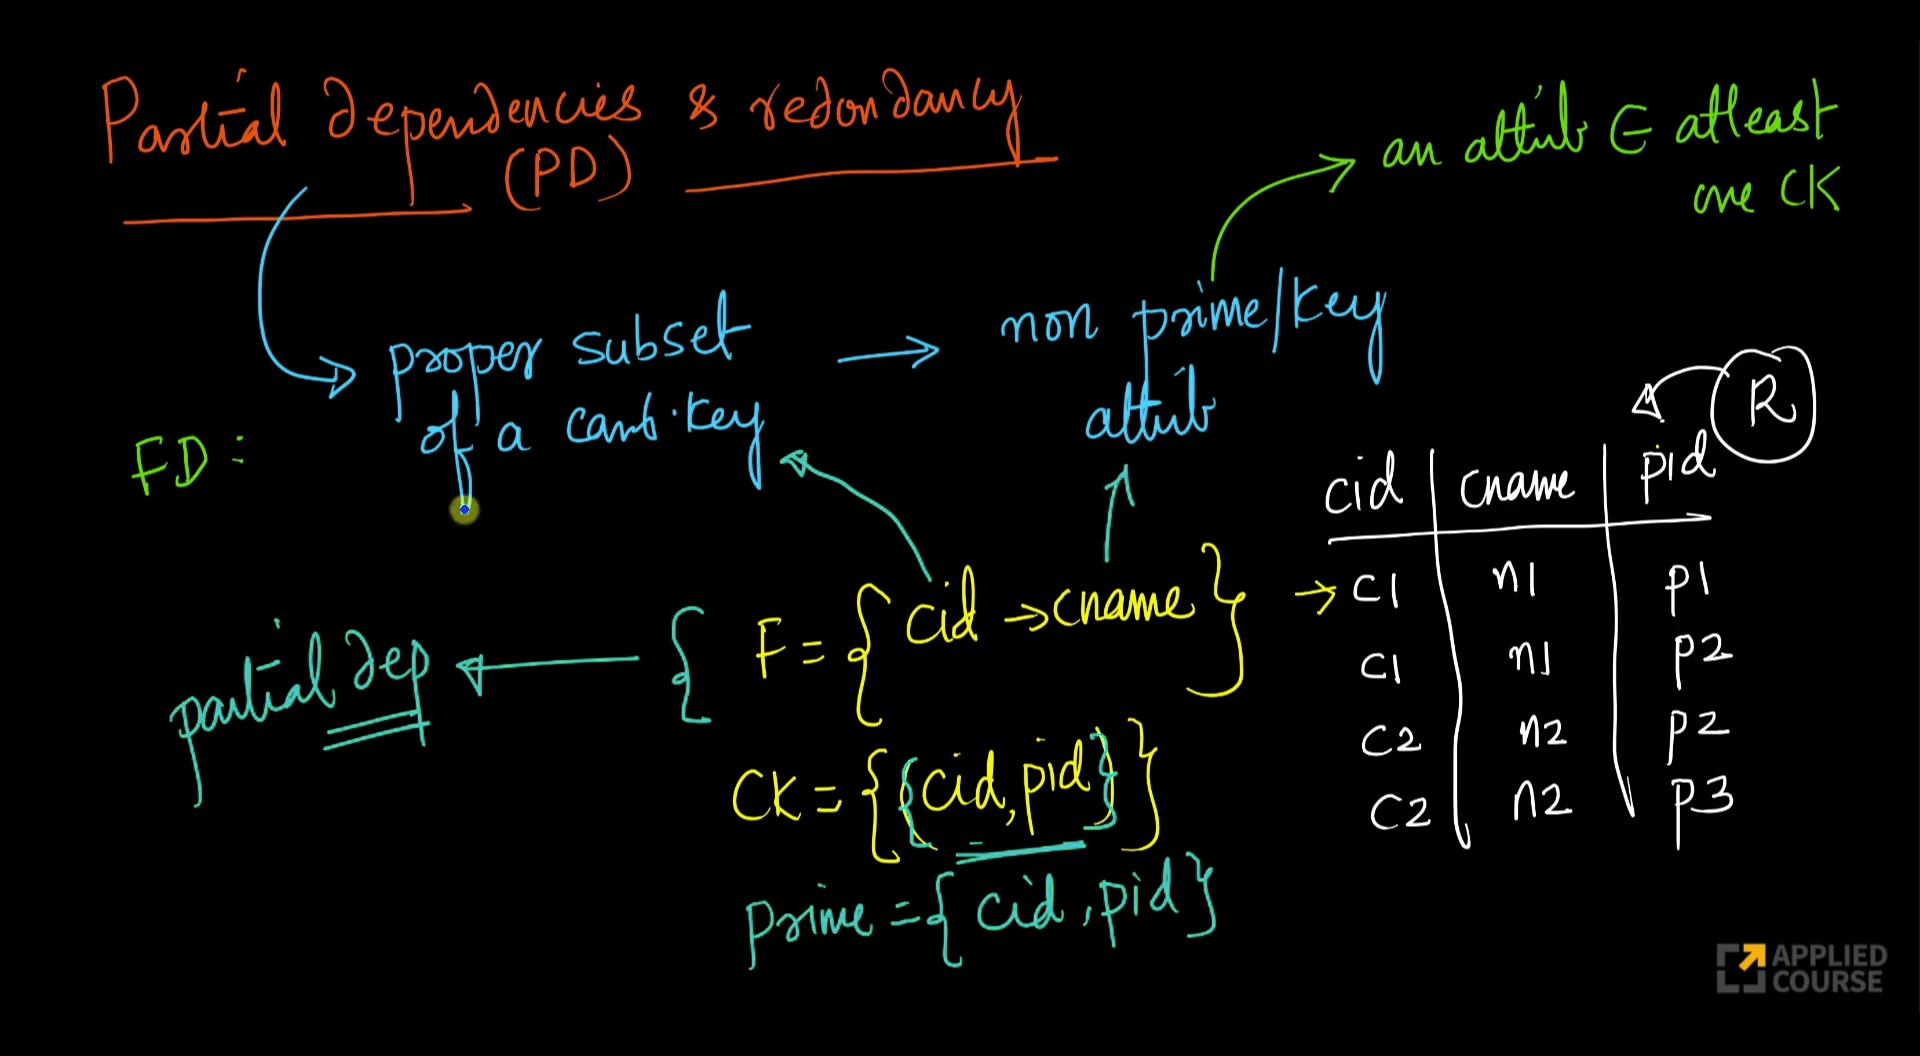 Partial dependencies & redondancy
(PD)
an attrib ∈ atleast
one CK
proper subset → non prime/key
of a cand·key attrib
FD:
R
cid | cname | pid
F = { cid → cname } → c1 n1 p1
c1 n1 p2
partial dep
CK = {{cid, pid}} c2 n2 p2
c2 n2 p3
prime = { cid, pid }
APPLIED
COURSE